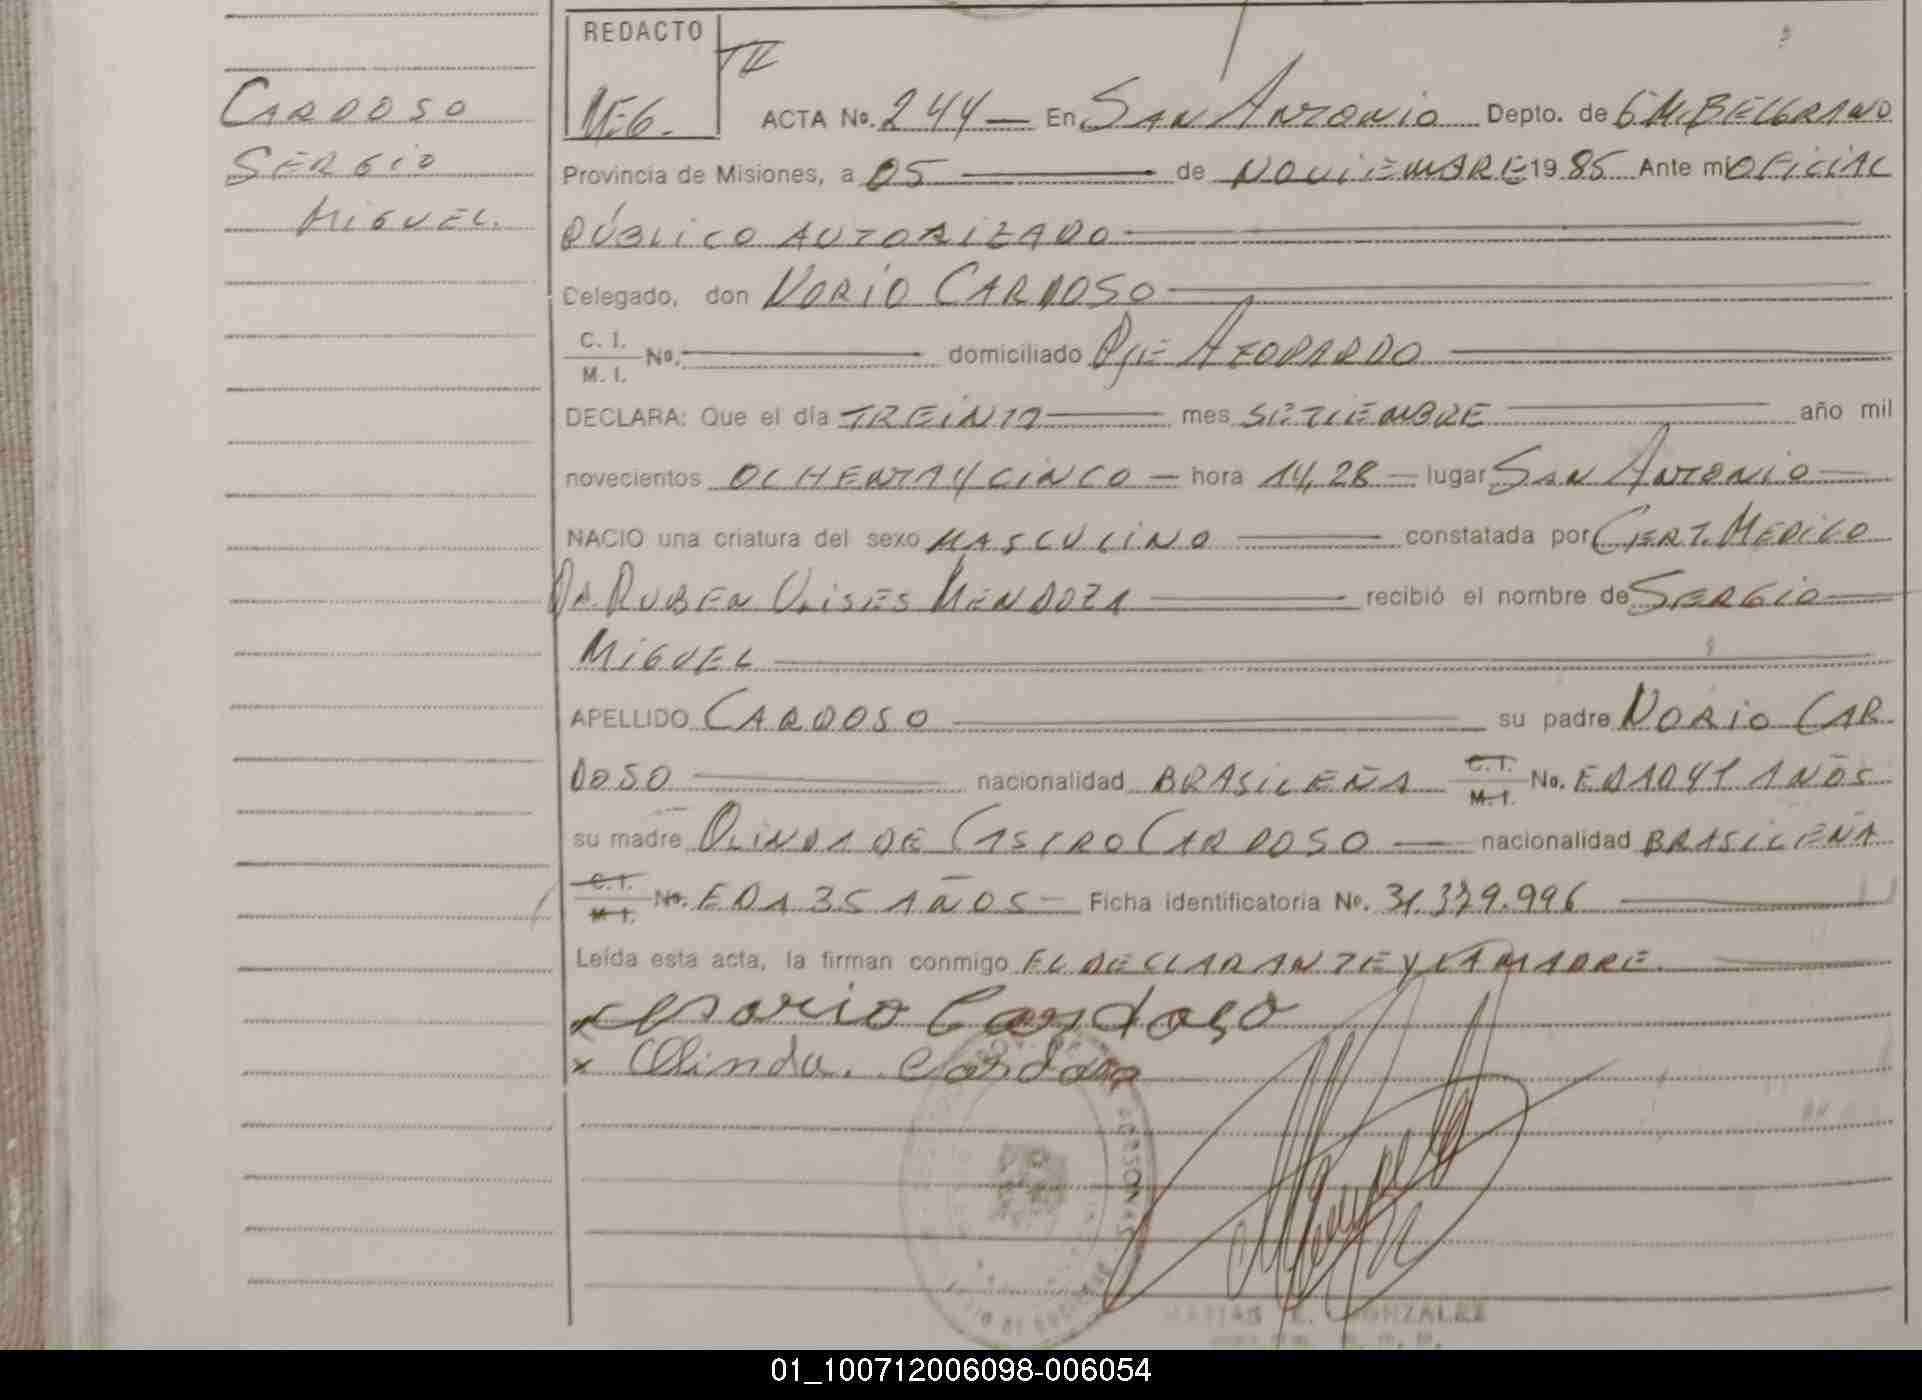 CARDOSO
SERGIO
MIGUEL.
REDACTO
ACTA No. 244 — En SAN ANTONIO Depto. de G M. BELGRANO
Provincia de Misiones, a 05 de NOVIEMBRE 1985 Ante mi OFICIAL
PÚBLICO AUTORIZADO
Delegado, don NORIO CARDOSO
C. I.
M. I. No. domiciliado PJE AZOPARDO
DECLARA: Que el día TREINTA mes SETIEMBRE año mil
novecientos OCHENTA Y CINCO — hora 14,28 — lugar SAN ANTONIO
NACIO una criatura del sexo MASCULINO constatada por CERT. MEDICO
DR. RUBEN ULISES MENDOZA recibió el nombre de SERGIO
MIGUEL
APELLIDO CARDOSO su padre NORIO CAR
DOSO nacionalidad BRASILEÑA C. I. M. I. No. EDAD 41 AÑOS
su madre OLINDA DE CASTRO CARDOSO — nacionalidad BRASILEÑA
C. I. M. I. No. EDA 35 AÑOS — Ficha identificatoria No. 31.379.996
Leída esta acta, la firman conmigo EL DECLARANTE Y LA MADRE.
x Norio Cardoso
x Olinda. Cardoso
MATIAS E. GONZALEZ
01_100712006098-006054